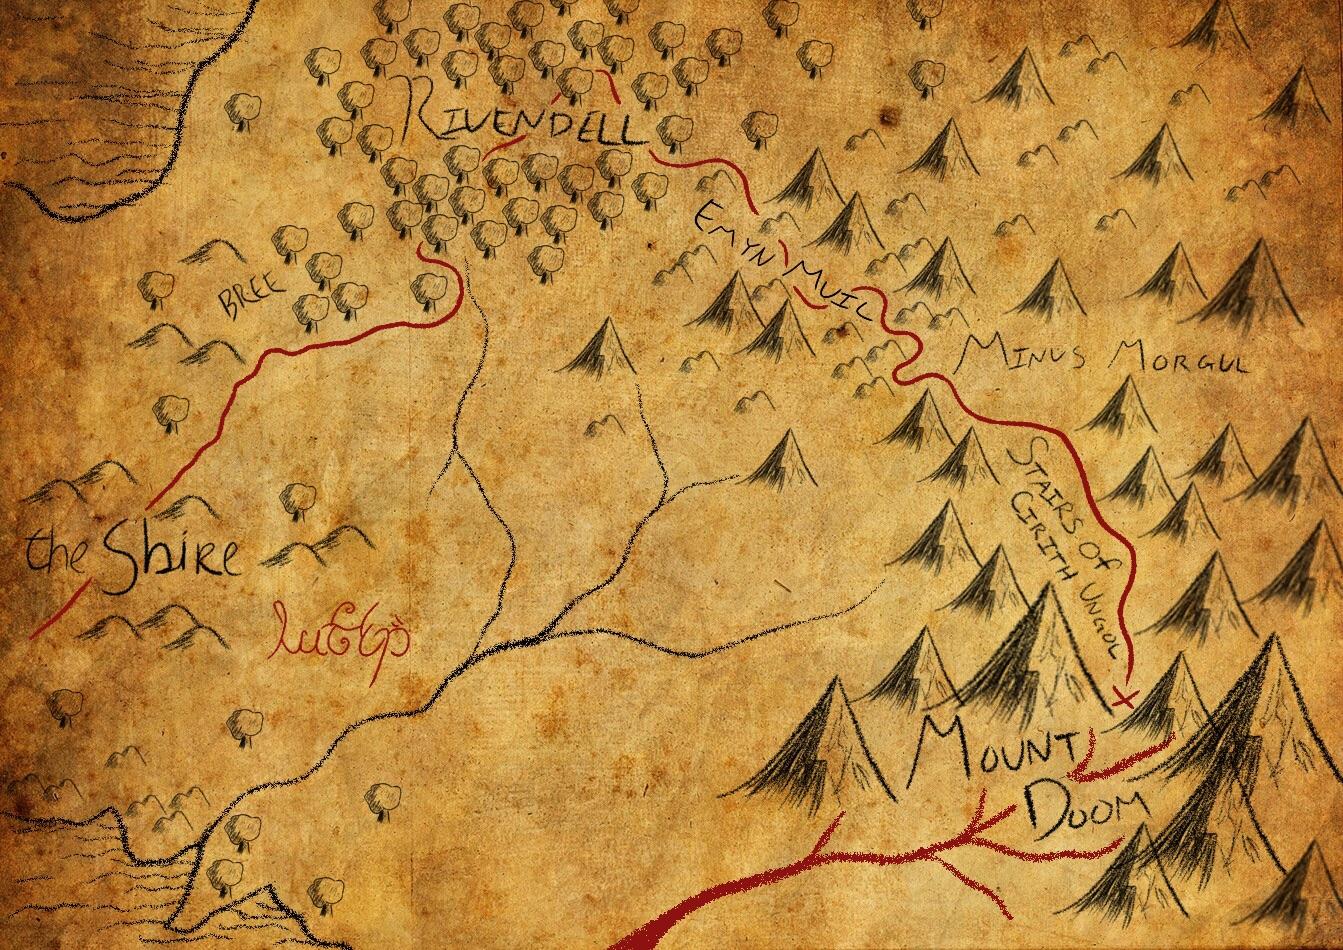 Rivendell
Emyn Muil
Bree
Minus Morgul
Stairs of
Cirith Ungol
the Shire
Mount
Doom